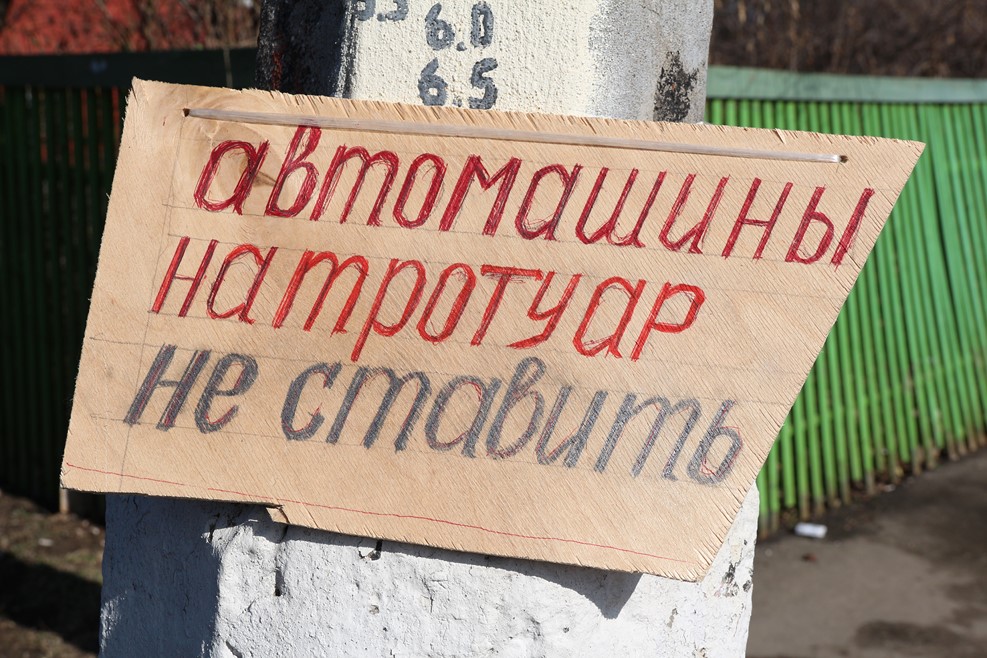 6.0
6.5
автомашины
на тротуар
не ставить